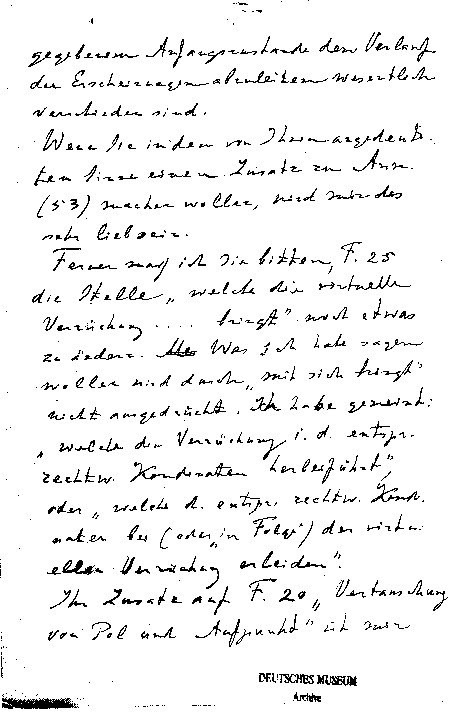 gegebenem Anfangszustande den Verlauf
der Erscheinungen abzuleiten wesentlich
verschieden sind.
Wenn Sie in dem von Ihnen angedeute-
ten Sinne einen Zusatz zu Anm.
(53) machen wollen, wird mir das
sehr lieb sein.
Ferner muß ich Sie bitten, F. 25
die Stelle „welche die virtuelle
Verrückung .... bringt" noch etwas
zu ändern. Was ich habe sagen
wollen wird durch „mit sich bringt"
nicht ausgedrückt. Ich habe gemeint:
„welche die Verrückung i. d. entspr.
rechtw. Koordinaten herbeiführt",
oder „welche d. entspr. rechtw. Koord-
naten bei (oder „in Folge") der virtu-
ellen Verrückung erleiden".
Ihr Zusatz auf F. 20 „Vertauschung
von Pol und Aufpunkt" ist mir
DEUTSCHES MUSEUM
Archive